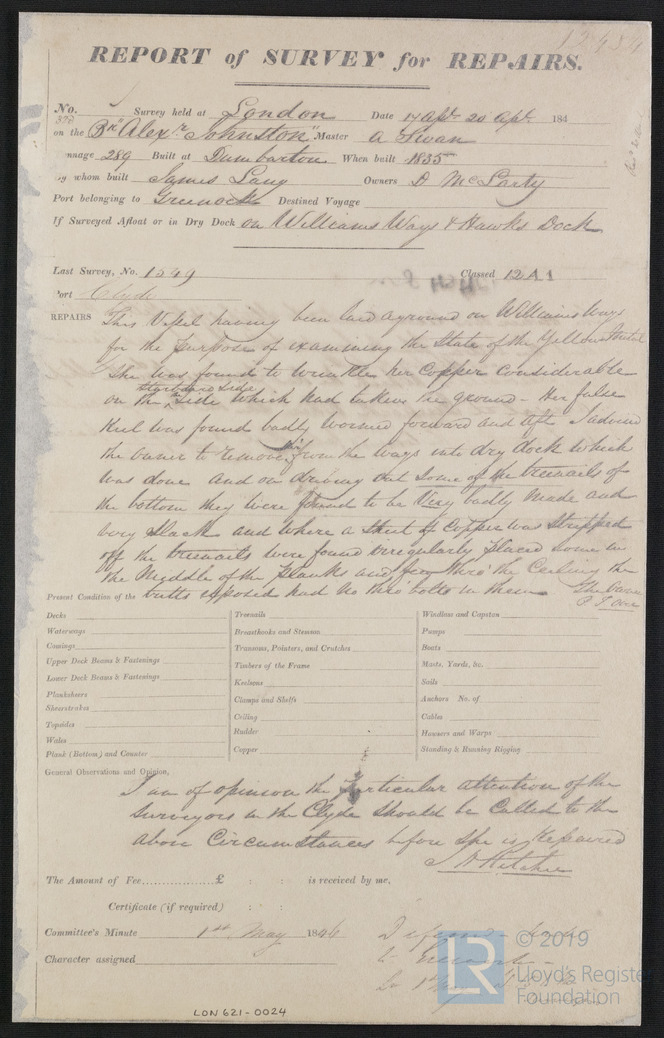 12434
REPORT of SURVEY for REPAIRS.
No. Survey held at London Date 17 Apl. 20 Apl. 184
378
on the Bk "Alexr Johnston" Master A Swan
nnage 289 Built at Dumbarton When built 1835
y whom built James Lang Owners D McLarty
Port belonging to Greenock Destined Voyage
If Surveyed Afloat or in Dry Dock on Williams Ways & Hawks Dock
Last Survey, No. 1549 Classed 12 A 1
Port Clyde
REPAIRS This Vessel having been laid aground on Williams Ways
for the purpose of examining the State of the Yellow Metal
She was found to wrinkle her Copper considerable
Starboard Side
on the Side which had taken the ground - Her false
Keel was found badly wormed forward and aft I advised
the owner to remove her from the Ways into dry dock which
was done and on driving out some of the treenails of
the bottom they were found to be Very badly Made and
very slack and where a Sheet of Copper was Stripped
off the treenails were found irregularly placed some in
the Middle of the planks and few thro' the Ceiling the
Present Condition of the butts exposed had no thro' bolts in them The Owner
P.T. over
Decks
Waterways
Comings
Upper Deck Beams & Fastenings
Lower Deck Beams & Fastenings
Planksheers
Sheerstrakes
Topsides
Wales
Plank (Bottom) and Counter
Treenails
Breasthooks and Stemson
Transoms, Pointers, and Crutches
Timbers of the Frame
Keelsons
Clamps and Shelfs
Ceiling
Rudder
Copper
Windlass and Capstan
Pumps
Boats
Masts, Yards, &c.
Sails
Anchors No. of
Cables
Hawsers and Warps
Standing & Running Rigging
General Observations and Opinion,
I am of opinion the particular attention of the
Surveyors in the Clyde should be Called to the
above Circumstances before she is Repaired
J H Ritchie
The Amount of Fee............... £ : : is received by me,
Certificate (if required) : :
Committee's Minute 1st May 1846
Character assigned
© 2019
LR Lloyd's Register
Foundation
LON 621-0024